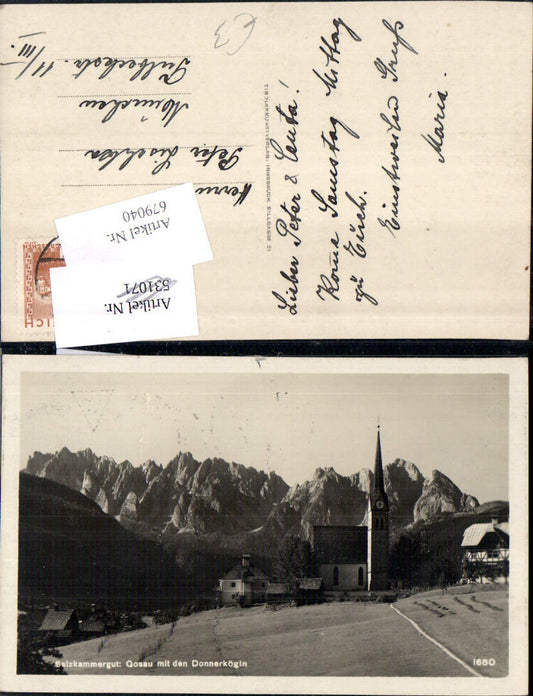 €3
Lieber Peter & Centa!
Kome Samstag Mittag
zu Euch.
Einstweilen Gruß
Maria.
Herrn
Peter
München
11/III.
Artikel Nr.
679040
Artikel Nr.
531071
Salzkammergut: Gosau mit den Donnerkögln
1660